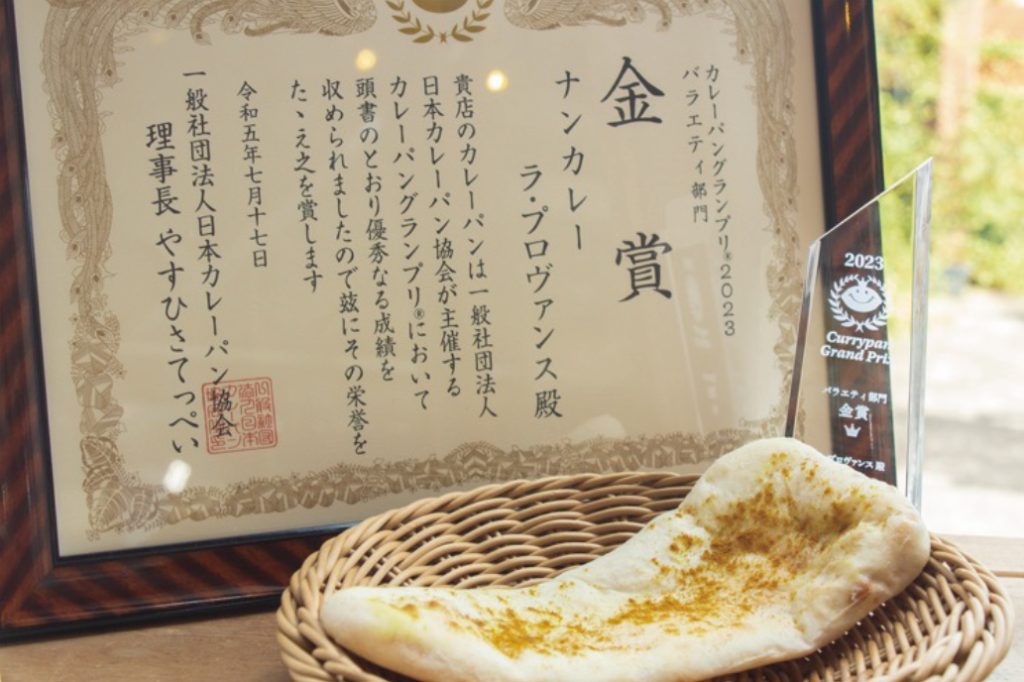 カレーパングランプリ®2023
バラエティ部門
金賞
ナンカレー
ラ・プロヴァンス殿
貴店のカレーパンは一般社団法人
日本カレーパン協会が主催する
カレーパングランプリ®において
頭書のとおり優秀なる成績を
収められましたので玆にその栄誉を
たゝえ之を賞します
令和五年七月十七日
一般社団法人日本カレーパン協会
理事長 やすひさてっぺい
2023
Currypan
Grand Prix
バラエティ部門
金賞
プロヴァンス 殿